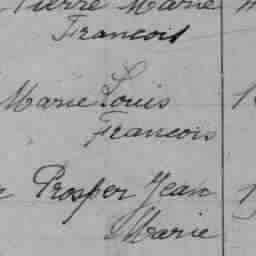 Pierre Marie
Francois
Marie Louis
Francois
Prosper Jean
Marie